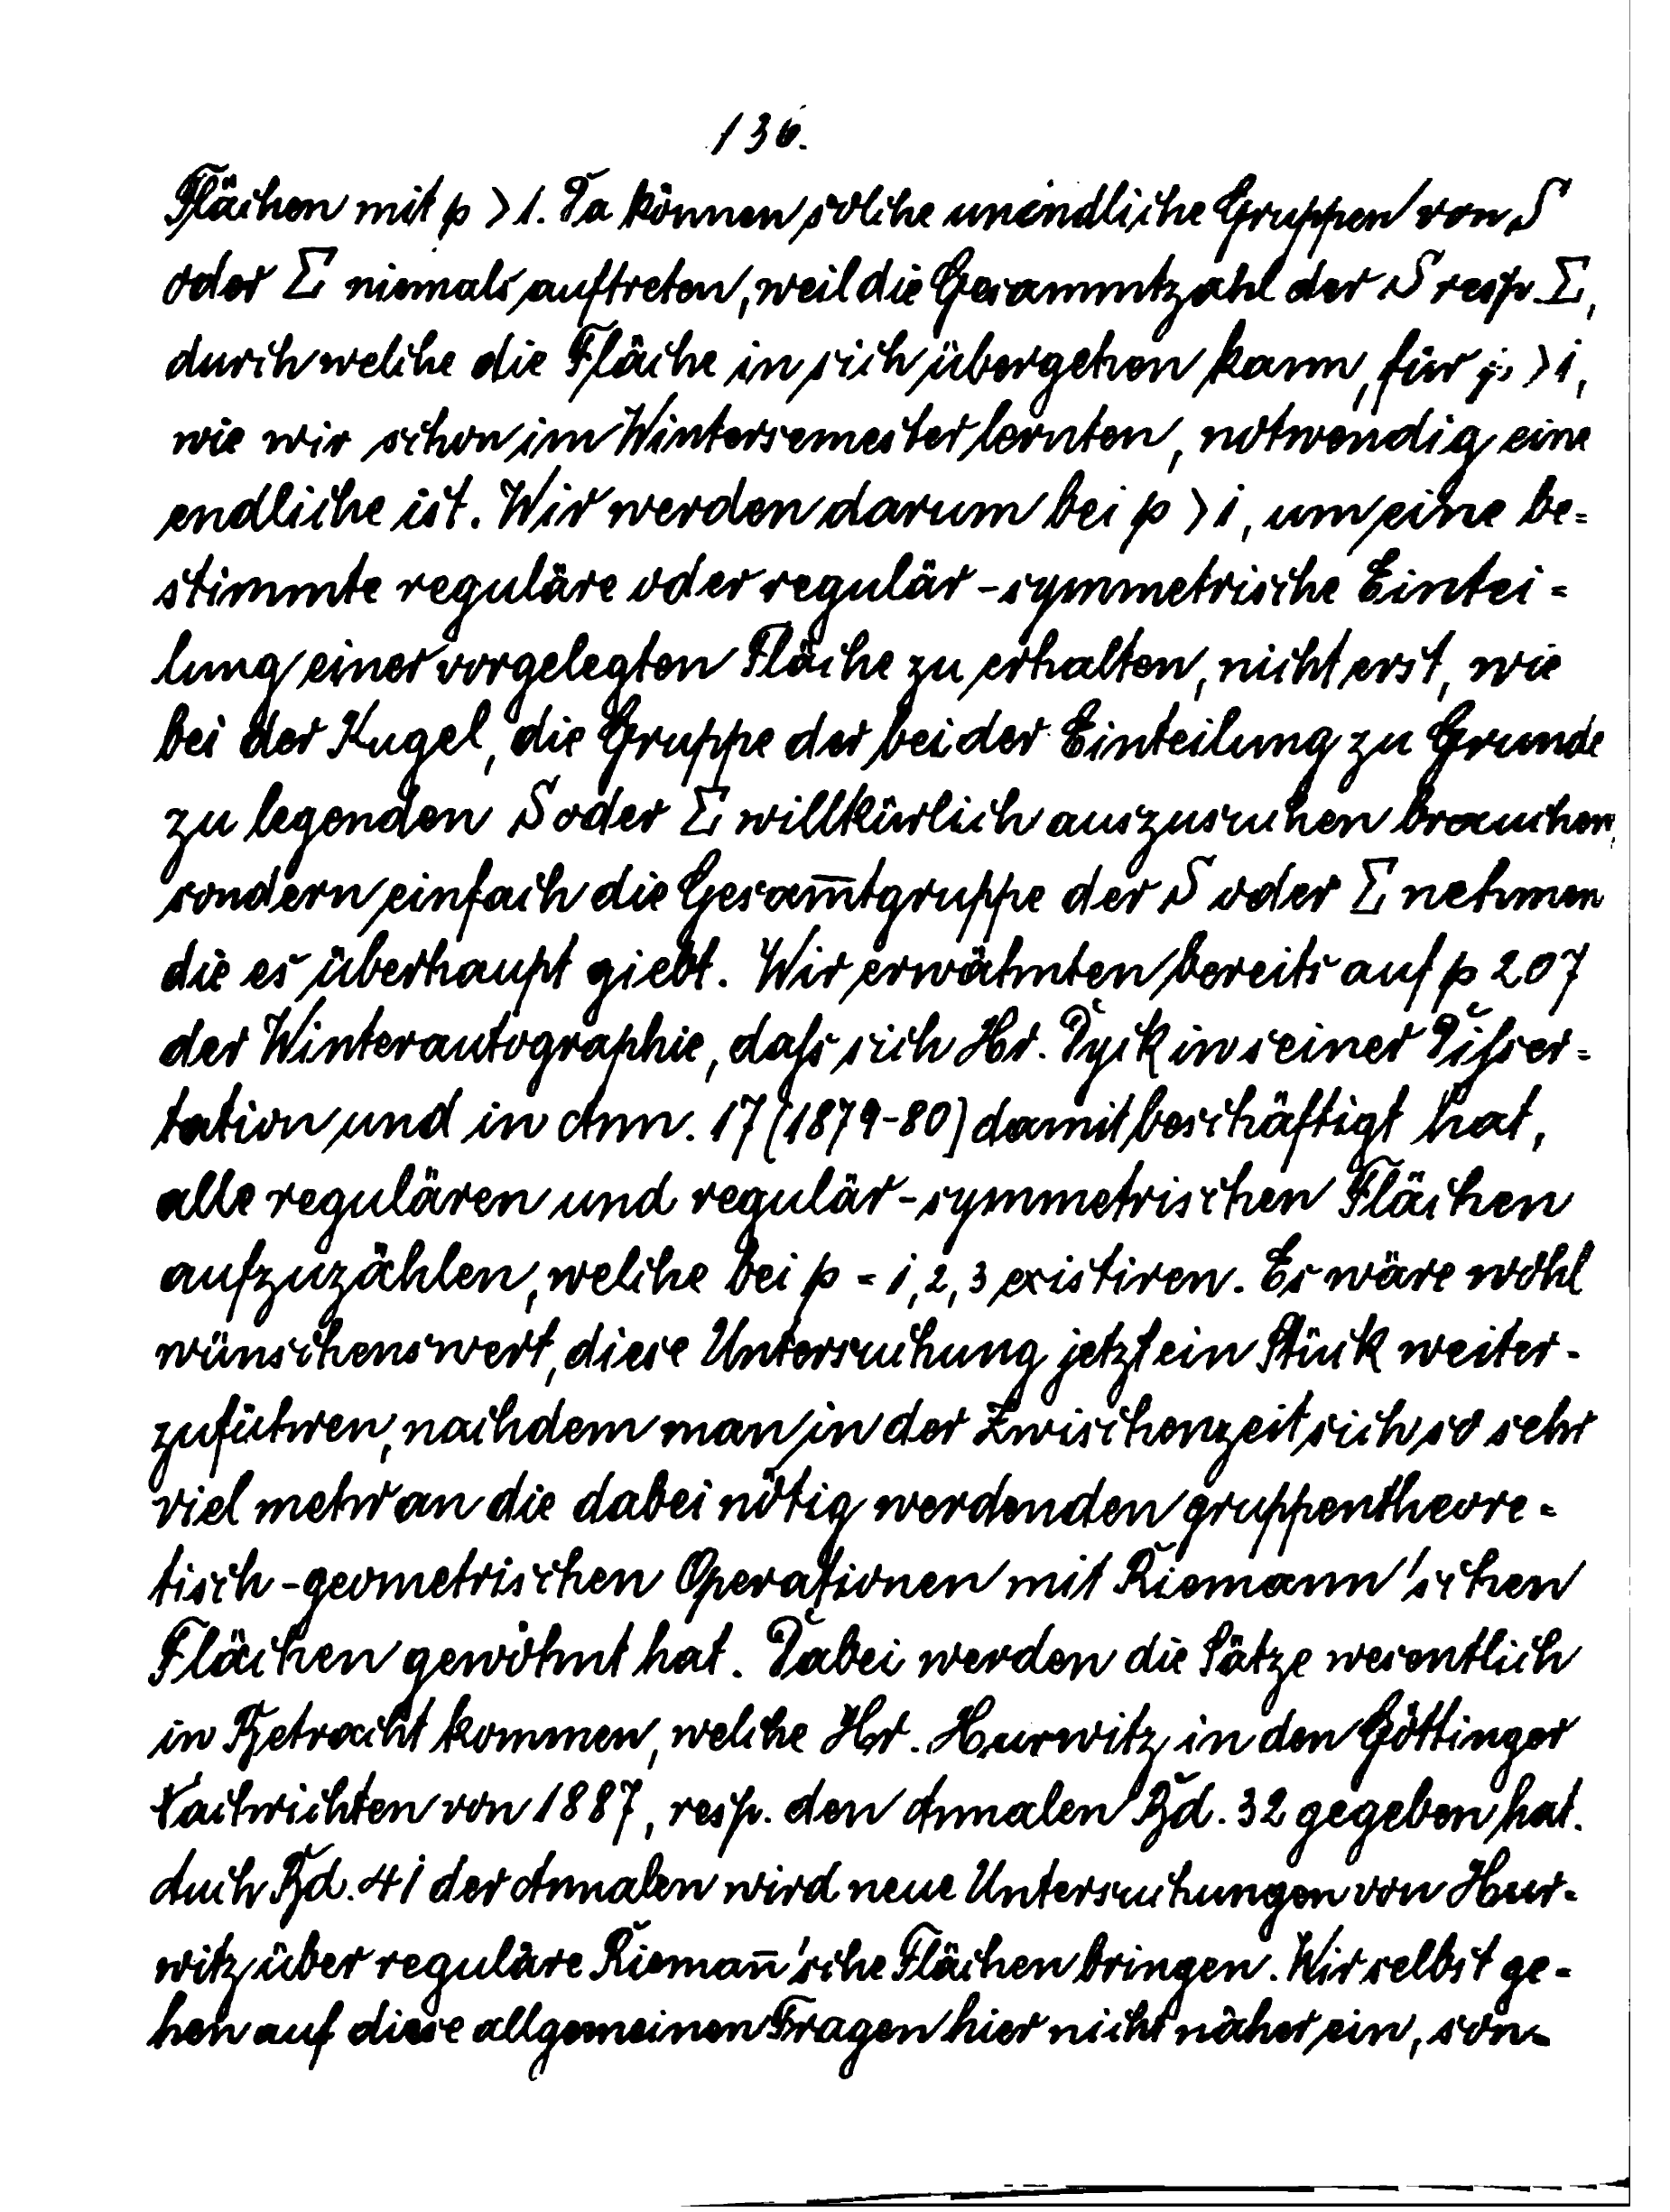 136.
Flächen mit p > 1. Da können solche unendliche Gruppen von S
oder Σ niemals auftreten, weil die Gesammtzahl der S resp. Σ,
durch welche die Fläche in sich übergehen kann, für p > 1,
wie wir schon im Wintersemester lernten, notwendig eine
endliche ist. Wir werden darum bei p > 1, um eine be=
stimmte reguläre oder regulär-symmetrische Eintei=
lung einer vorgelegten Fläche zu erhalten, nicht erst, wie
bei der Kugel, die Gruppe der bei der Einteilung zu Grunde
zu legenden S oder Σ willkürlich auszusuchen brauchen,
sondern einfach die Gesam̅tgruppe der S oder Σ nehmen
die es überhaupt giebt. Wir erwähnten bereits auf p 207
der Winterautographie, dafs sich Hr. Dyck in seiner Difser=
tation und in Ann. 17 (1879-80) damit beschäftigt hat,
alle regulären und regulär-symmetrischen Flächen
aufzuzählen, welche bei p = 1, 2, 3 existiren. Es wäre wohl
wünschenswert, diese Untersuchung jetzt ein Stück weiter-
zuführen, nachdem man in der Zwischenzeit sich so sehr
viel mehr an die dabei nötig werdenden gruppentheore=
tisch-geometrischen Operationen mit Riemann'schen
Flächen gewöhnt hat. Dabei werden die Sätze wesentlich
in Betracht kommen, welche Hr. Hurwitz in den Göttinger
Nachrichten von 1887, resp. den Annalen Bd. 32 gegeben hat.
Auch Bd. 41 der Annalen wird neue Untersuchungen von Hur-
witz über reguläre Rieman̅'sche Flächen bringen. Wir selbst ge-
hen auf diese allgemeinen Fragen hier nicht näher ein, son=